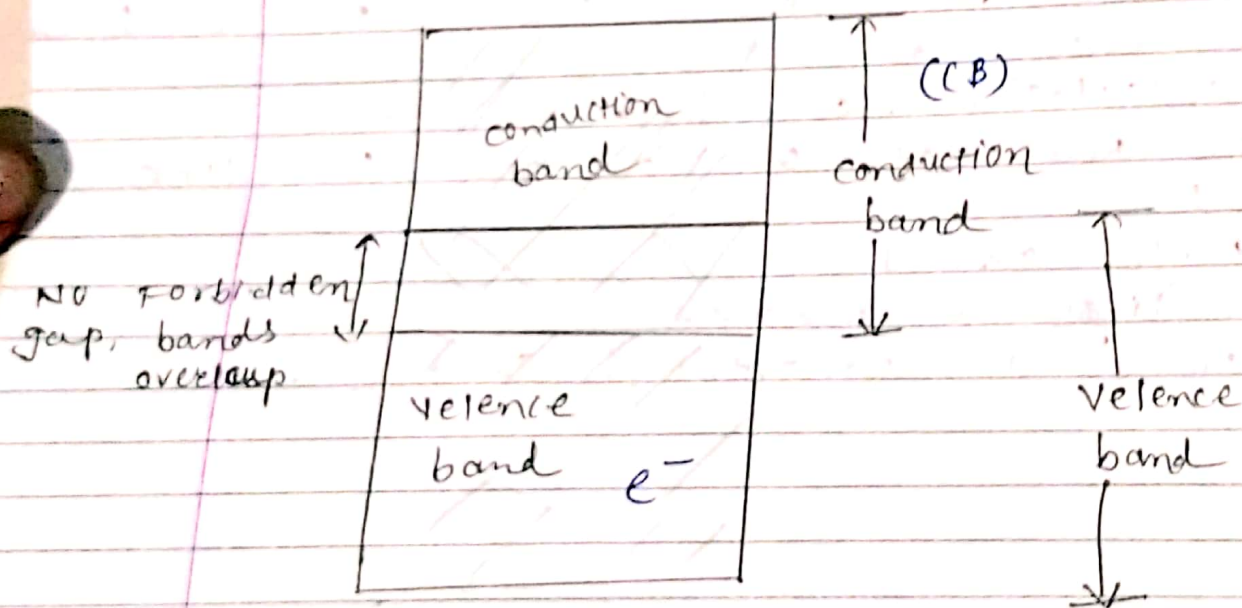 conduction
band
(CB)
conduction
band
No Forbidden
gap, bands
overlap
velence
band e⁻
Velence
band